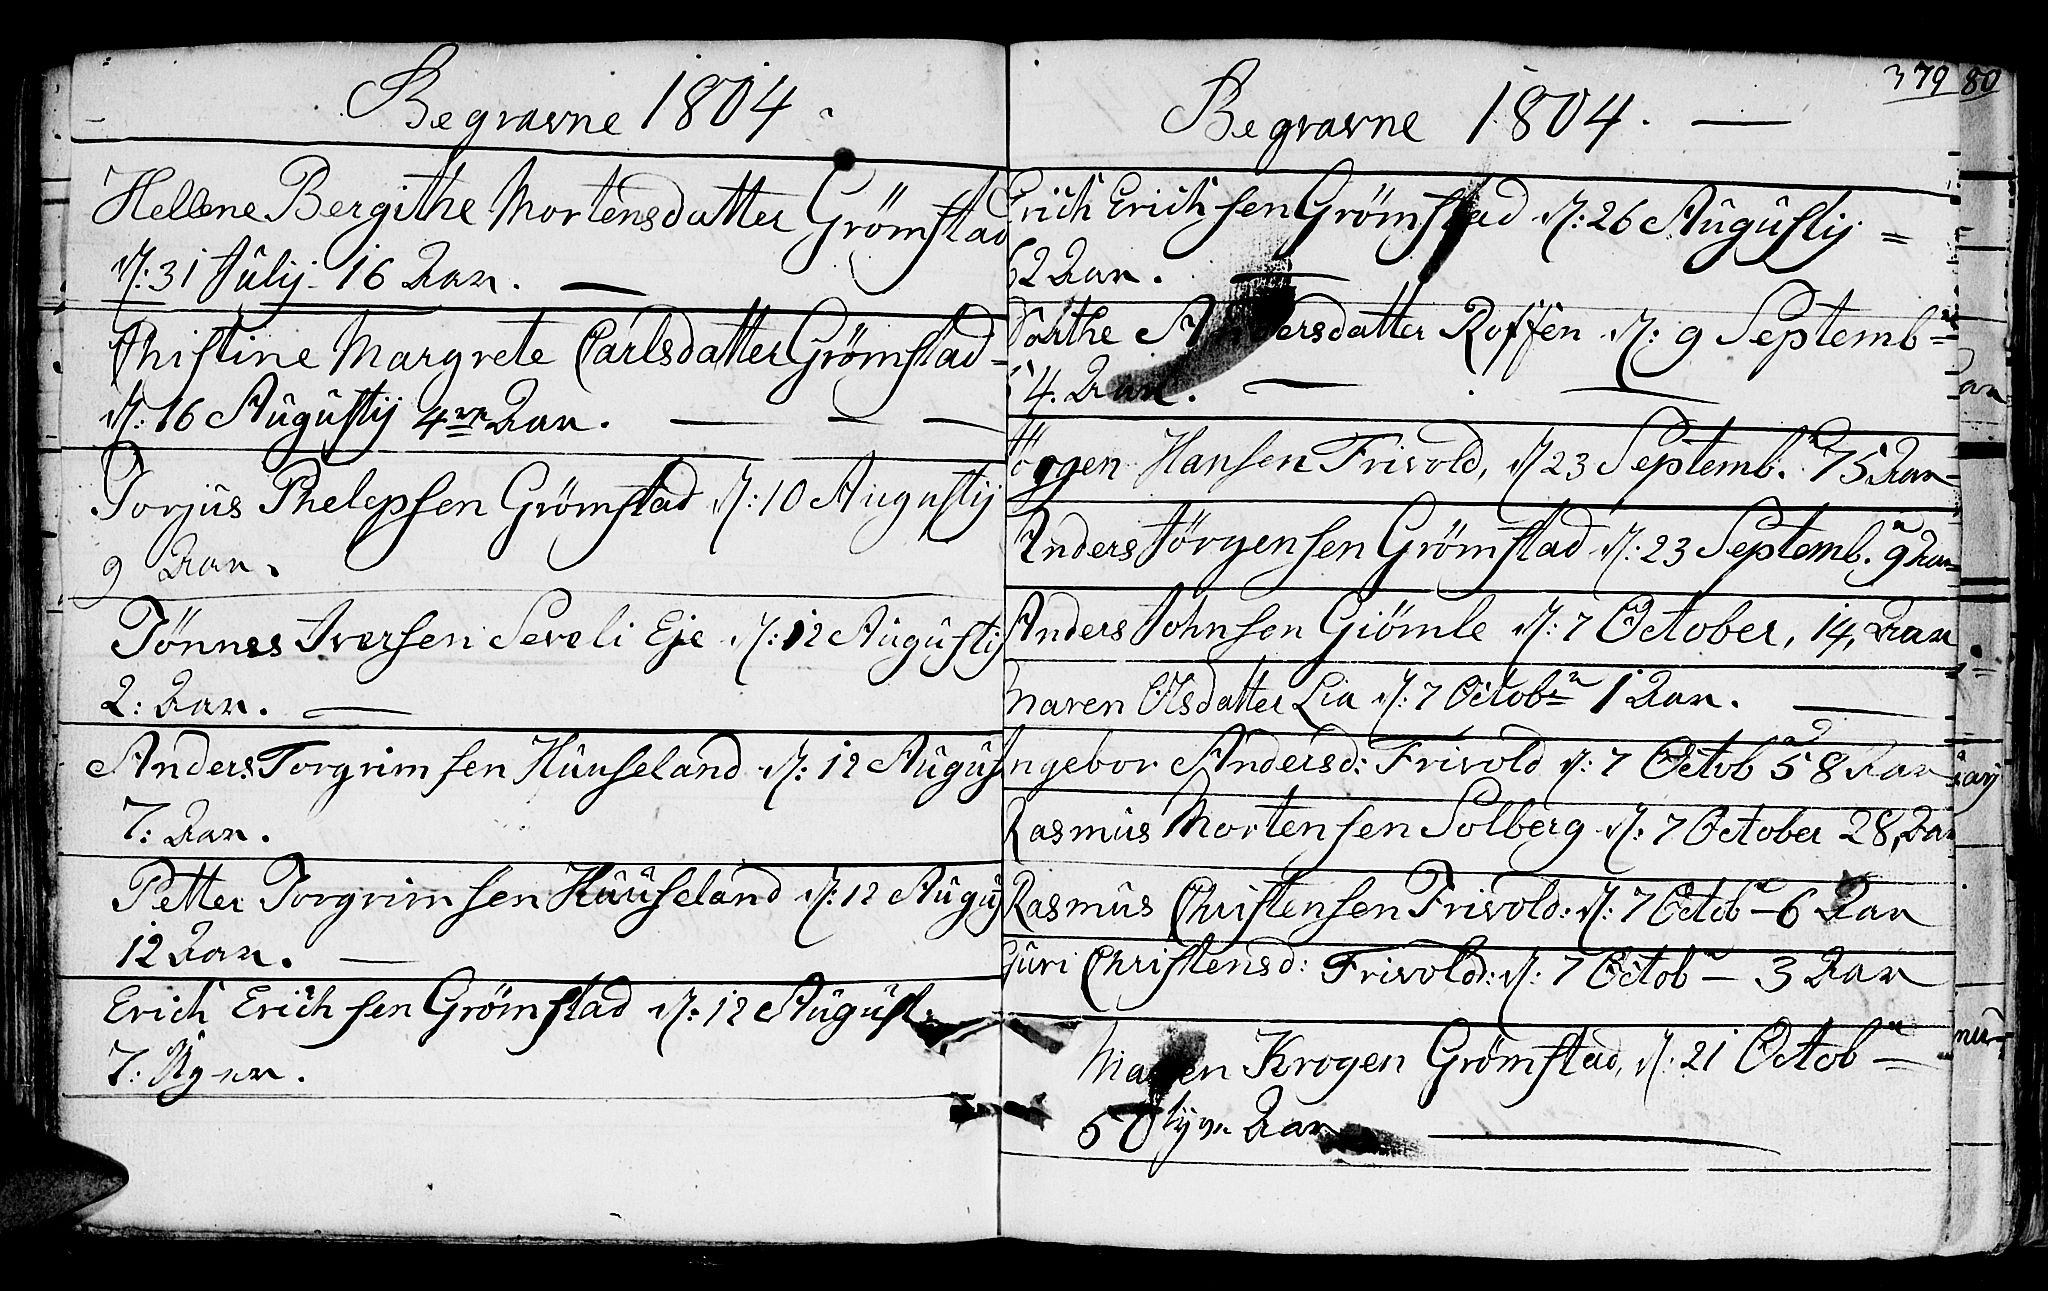 Begravne 1804.
Hellene Bergithe Mortensdatter Grömstad
d: 31 Julij 16 Aar.
Christine Margrete Carlsdatter Grömstad
d: 16 Augustij 4re Aar.
Torjus Phelepsen Grömstad d: 10 Augustij
9 Aar.
Tönnes Iversen Seveli Eje d: 12 Augustij
2: Aar.
Anders Torgrimsen Huuseland d: 12 Augus
7: Aar.
Petter Torgrimsen Huuseland d: 12 Augu
12 Aar.
Erich Erichsen Grömstad d: 12 August.
7: Uger.
379 80
Begravne 1804.
Erich Erichsen Grömstad d: 26 Augustij
62 Aar.
Dorthe Andersdatter Roffen d: 9 Septembr
4. Aar.
Jörgen Hansen Frivold, d 23 Septemb. 75 Aar
Anders Jörgensen Grömstad d: 23 Septemb. 9 Aar
Anders Johnsen Giömle d: 7 October, 14, Aar
Maren Olsdatter Lia d: 7 Octobr 1 Aar.
Ingebor Andersd: Frivold d: 7 Octob 58 Aar
Rasmus Mortensen Solberg d: 7 October 28, Aar
Rasmus Christensen Frivold: d: 7 Octobr 6 Aar
Guri Christensd: Frivold: d: 7 Octobr 3 Aar
Maren Krogen Grömstad, d: 21 Octobr
50tyve Aar